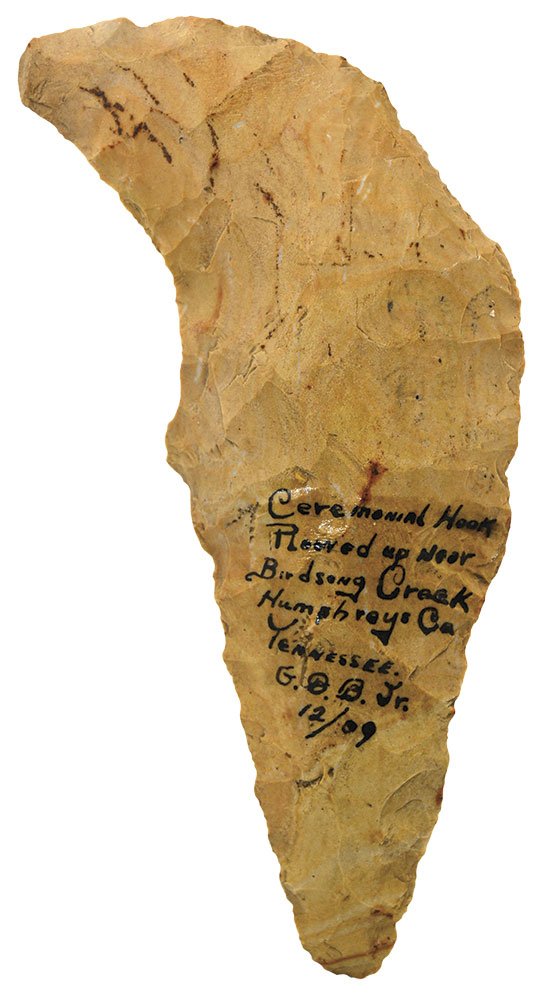 Ceremonial Hook
Plowed up Near
Birdsong Creek
Humphreys Co
TENNESSEE.
G.O.B. Jr.
12/09